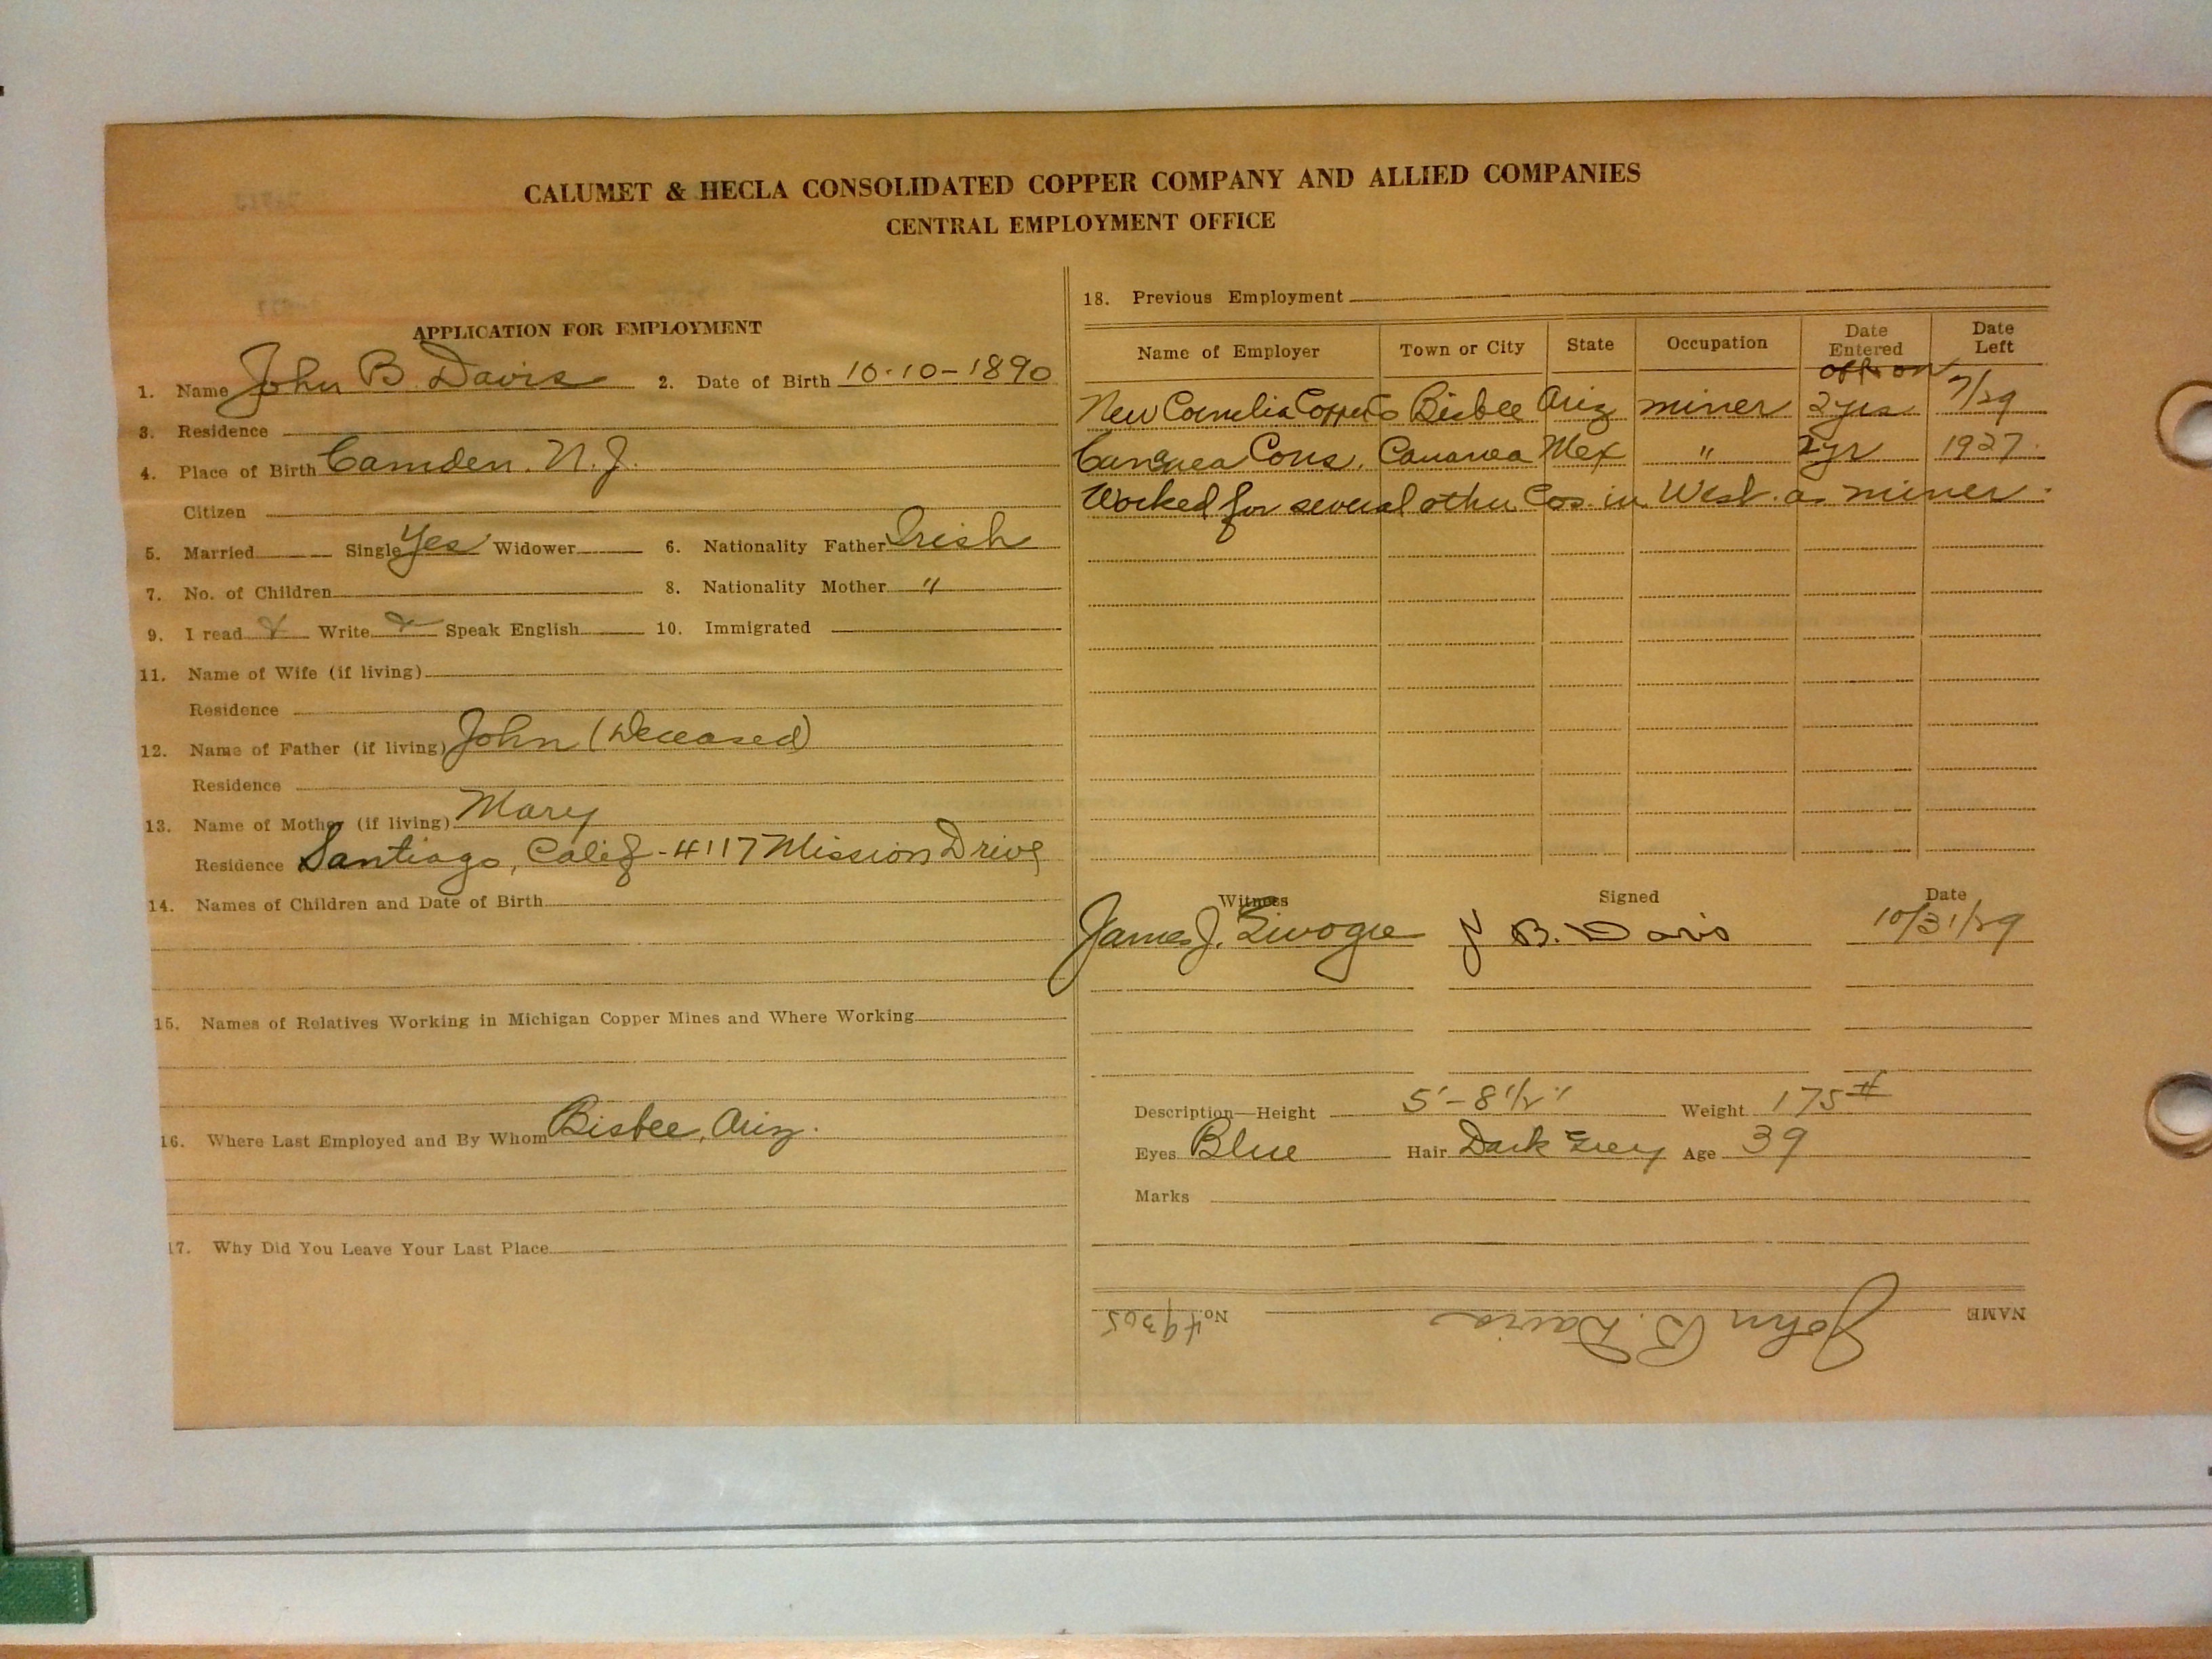 CALUMET & HECLA CONSOLIDATED COPPER COMPANY AND ALLIED COMPANIES
CENTRAL EMPLOYMENT OFFICE
APPLICATION FOR EMPLOYMENT
1. Name John B. Davis 2. Date of Birth 10-10-1890
3. Residence
4. Place of Birth Camden. N.J.
Citizen
5. Married Single Yes Widower 6. Nationality Father Irish
7. No. of Children 8. Nationality Mother "
9. I read Write Speak English 10. Immigrated
11. Name of Wife (if living)
Residence
12. Name of Father (if living) John (Deceased)
Residence
13. Name of Mother (if living) Mary
Residence Santiago, Calif - 4117 Mission Drive
14. Names of Children and Date of Birth
15. Names of Relatives Working in Michigan Copper Mines and Where Working
16. Where Last Employed and By Whom Bisbee, Ariz.
17. Why Did You Leave Your Last Place
18. Previous Employment
Name of Employer Town or City State Occupation Date Entered Date Left
off on
New Cornelia Copper Co Bisbee Ariz miner 2 yrs 7/29
Cananea Cons. Cananea Mex " yr 1927.
Worked for several other Cos. in West. as miner.
Witness Signed Date
James J. J B. Davis 10/31/29
Description—Height 5'-8 1/2" Weight 175 #
Eyes Blue Hair Dark Grey Age 39
Marks
NAME John B. Davis No. 49305